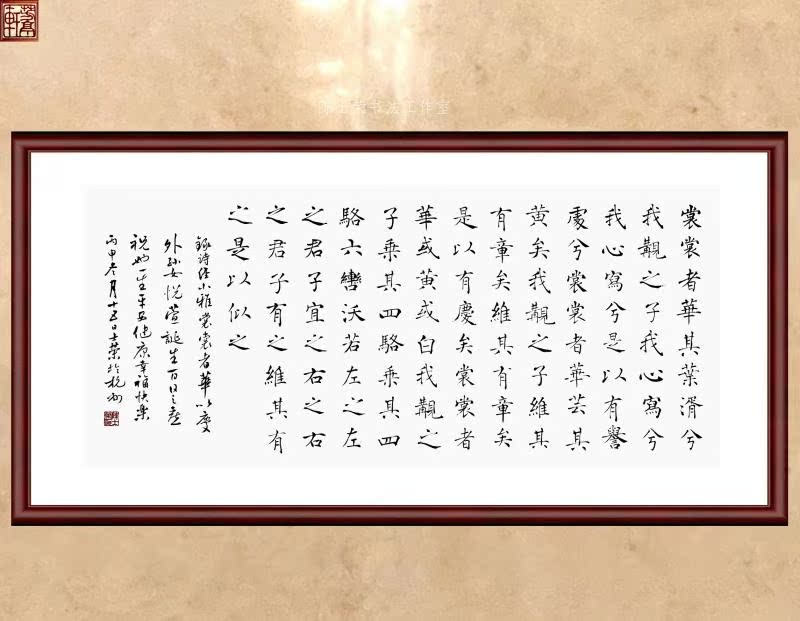 裳裳者華其葉湑兮
我覯之子我心寫兮
我心寫兮是以有譽
處兮裳裳者華芸其
黃矣我覯之子維其
有章矣維其有章矣
是以有慶矣裳裳者
華或黃或白我覯之
子乘其四駱乘其四
駱六轡沃若左之左
之君子宜之右之右
之君子有之維其有
之是以似之
錄詩經小雅裳裳者華以慶
外孙女悦萱誕生百日之
祝她一生平安健康幸福快樂
丙申冬月十五日士荣於杭州
书法工作室